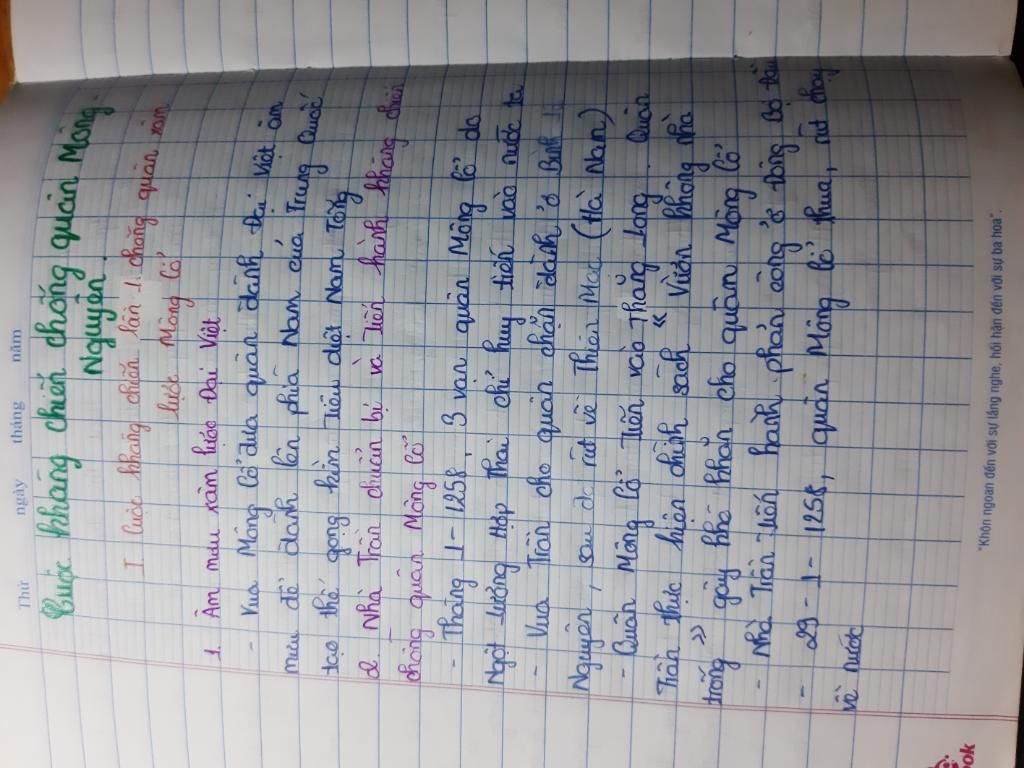 Thứ ngày tháng năm
Cuộc kháng chiến chống quân Mông.
Nguyên.
I Cuộc kháng chiến lần 1 chống quân xâm
lược Mông Cổ
1. Âm mưu xâm lược Đại Việt
- Vua Mông Cổ đưa quân đánh Đại Việt âm
mưu để đánh lên phía Nam của Trung Quốc
tạo thế gọng kìm tiêu diệt Nam Tống
2. Nhà Trần chuẩn bị và tiến hành kháng chiến
chống quân Mông Cổ
- Tháng 1 - 1258, 3 vạn quân Mông Cổ do
Ngột Lương Hợp Thai chỉ huy tiến vào nước ta
- Vua Trần cho quân chặn đánh ở Bình
Nguyên, sau đó rút về Thiên Mạc (Hà Nam)
- Quân Mông Cổ tiến vào Thăng Long. Quân
Trần thực hiện chính sách " Vườn không nhà
trống " gây khó khăn cho quân Mông Cổ
- Nhà Trần tiến hành phản công ở Đông Bộ Đầu
- 29 - 1 - 1258, quân Mông Cổ thua, rút chạy
về nước
"Khôn ngoan đến với sự lắng nghe, hối hận đến với sự ba hoa".
ook